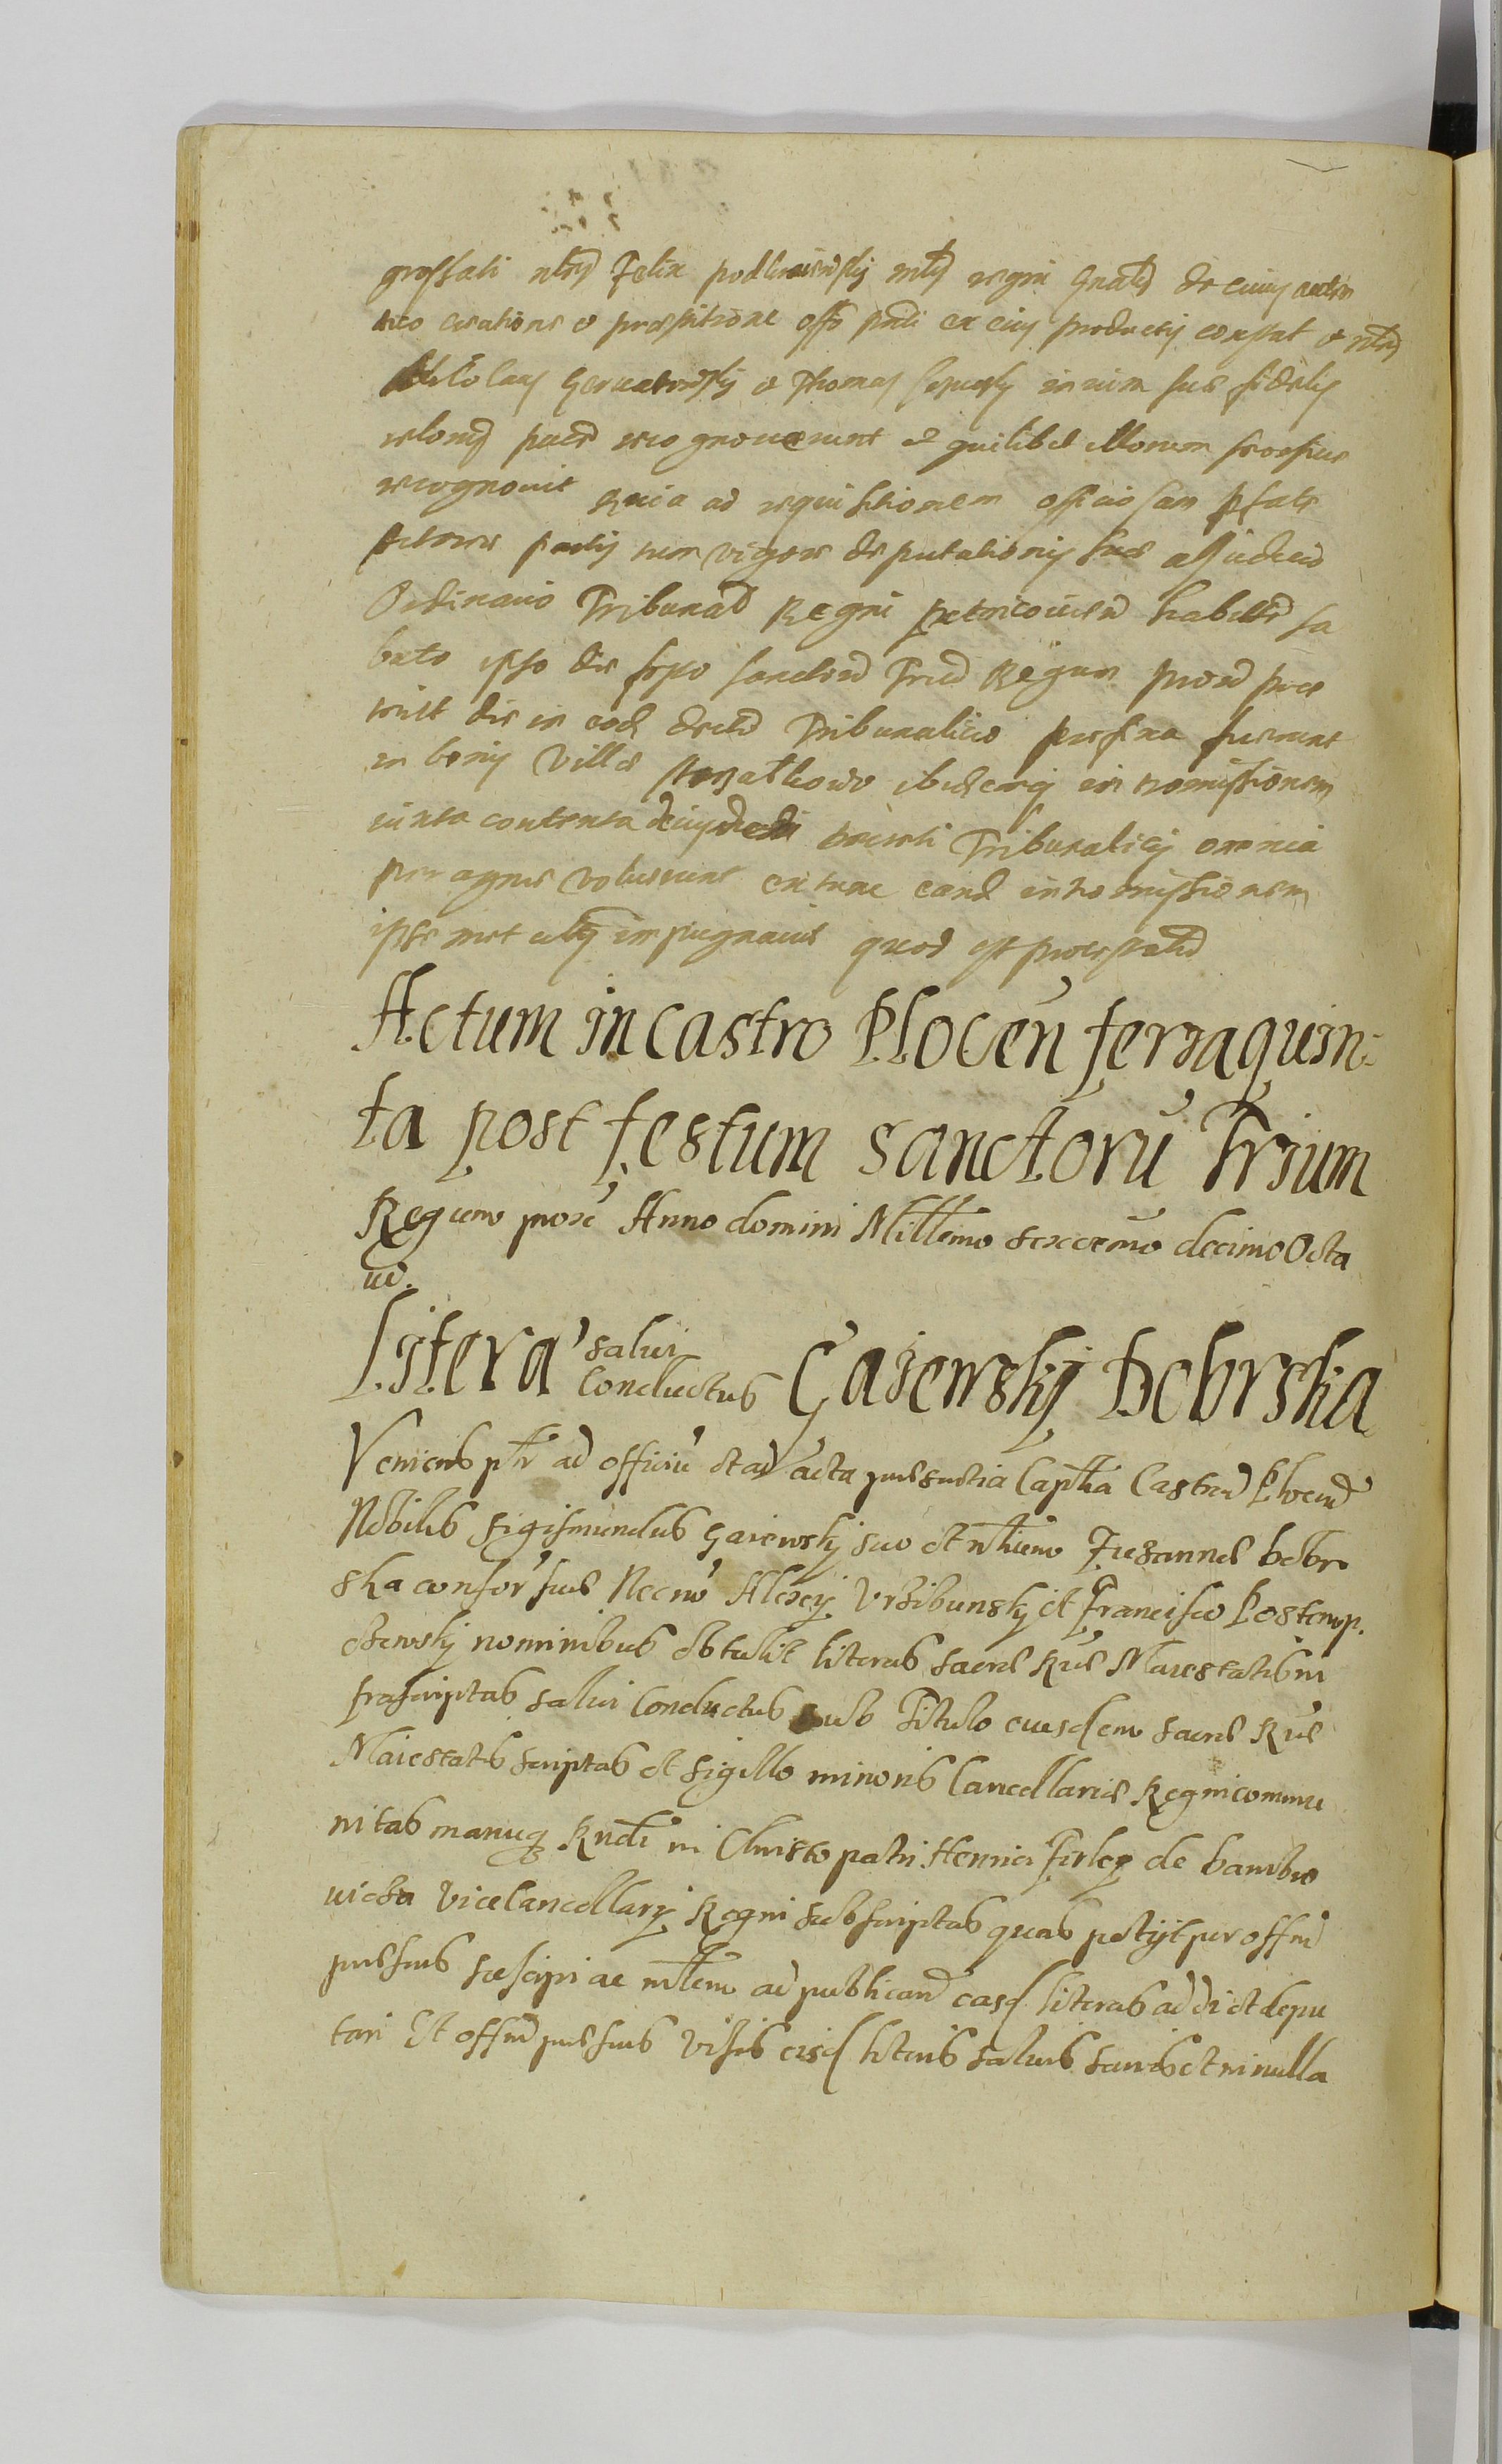 grossati nbs Felix podl mlis regni gnalis de cuius auten
tico creatione et prestitione offo pnti ex eius productis constat et nbs
Nicolaus et Thomas in vim sue fidelis
relonis pnter recognoverunt et quilibet illorum seorsive
recognouit Quia ad requisitionem officiosam pfate
actoree partis tum vigore deputationis suae a Judicio
Ordinario Tribunal Regni petricovien habitis sa
bato ipso die festo sanctorum Trium Regum proxime prae
terit die in eod decreto Tribunalicio prefixa fuerunt
in bonis villae ibidemq intromissionem
iuxta contenta eiusdem decreti Tribunalicij omnia
peragere voluerunt extunc eand intromissionem
ipsemet impugnavit quod est protestatus
Actum in Castro Plocen feria quin:
ta post festum sanctorũ Trium
Regum prox Anno domini Millemo sexcemo decimo Octa
uo.
Litera salui Conductus Gaiewskÿ Bobrska
Veniens pr ad officiũ et ad acta praesentia Captlia Castren Plocen
Nobilis Sigismundus Gaiewskj suo et nlium Zuzannae bobr
ska consor suae Necnõ Alexij Vrzibunskj et Francisco Postemp.
czewskj nominibus obtulit literas sacrae Rae Maiestatis in
frascriptas salui Conductus sub Titulo eiusdem sacrae Rae
Maiestatis scriptas et sigillo minoris Cancellariae Regni commu
nitas manuq Rndi in Christo patri Henrici firley de bambro
uicza Vicecancellarij Regni subscriptas quas petijt per offm
praesens suscipi ac mlem ad publicand easd literas addi et depu
tari Et offm praesens visis eisd literis saluis sanis et in nulla